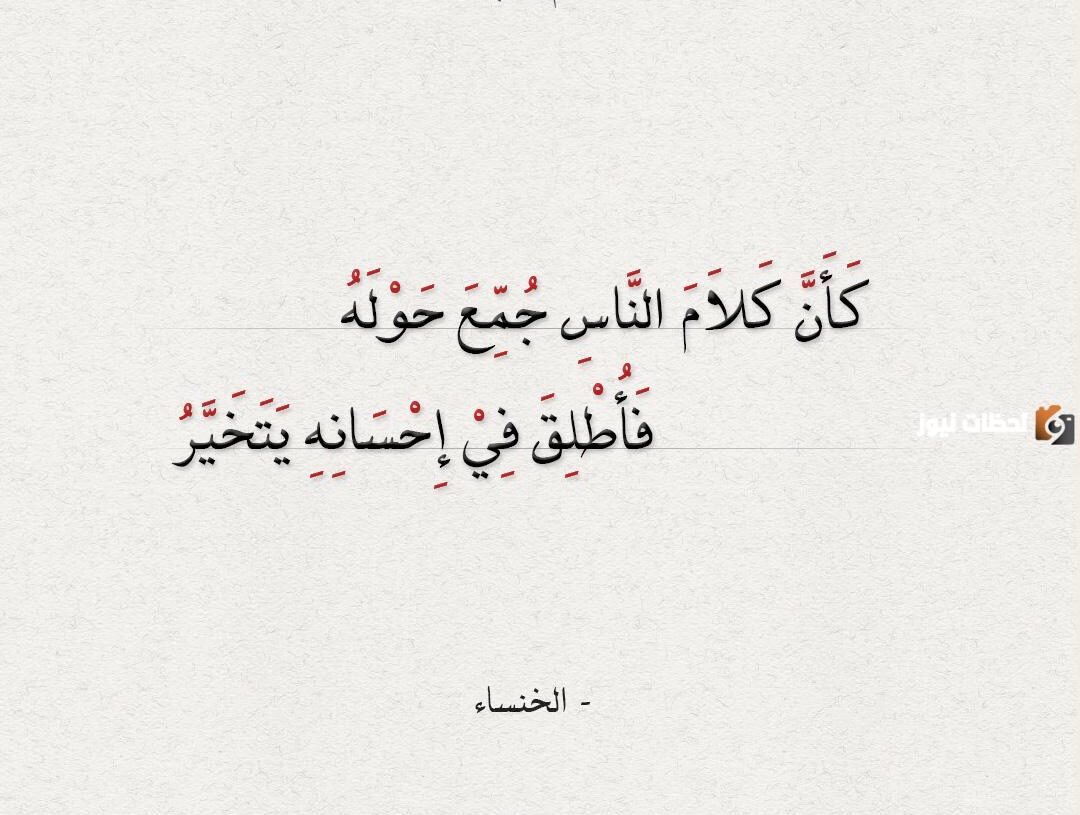 كَأَنَّ كَلاَمَ النَّاسِ جُمِّعَ حَوْلَهُ
فَأُطْلِقَ فِيْ إِحْسَانِهِ يَتَخَيَّرُ
لحظات نيوز
- الخنساء